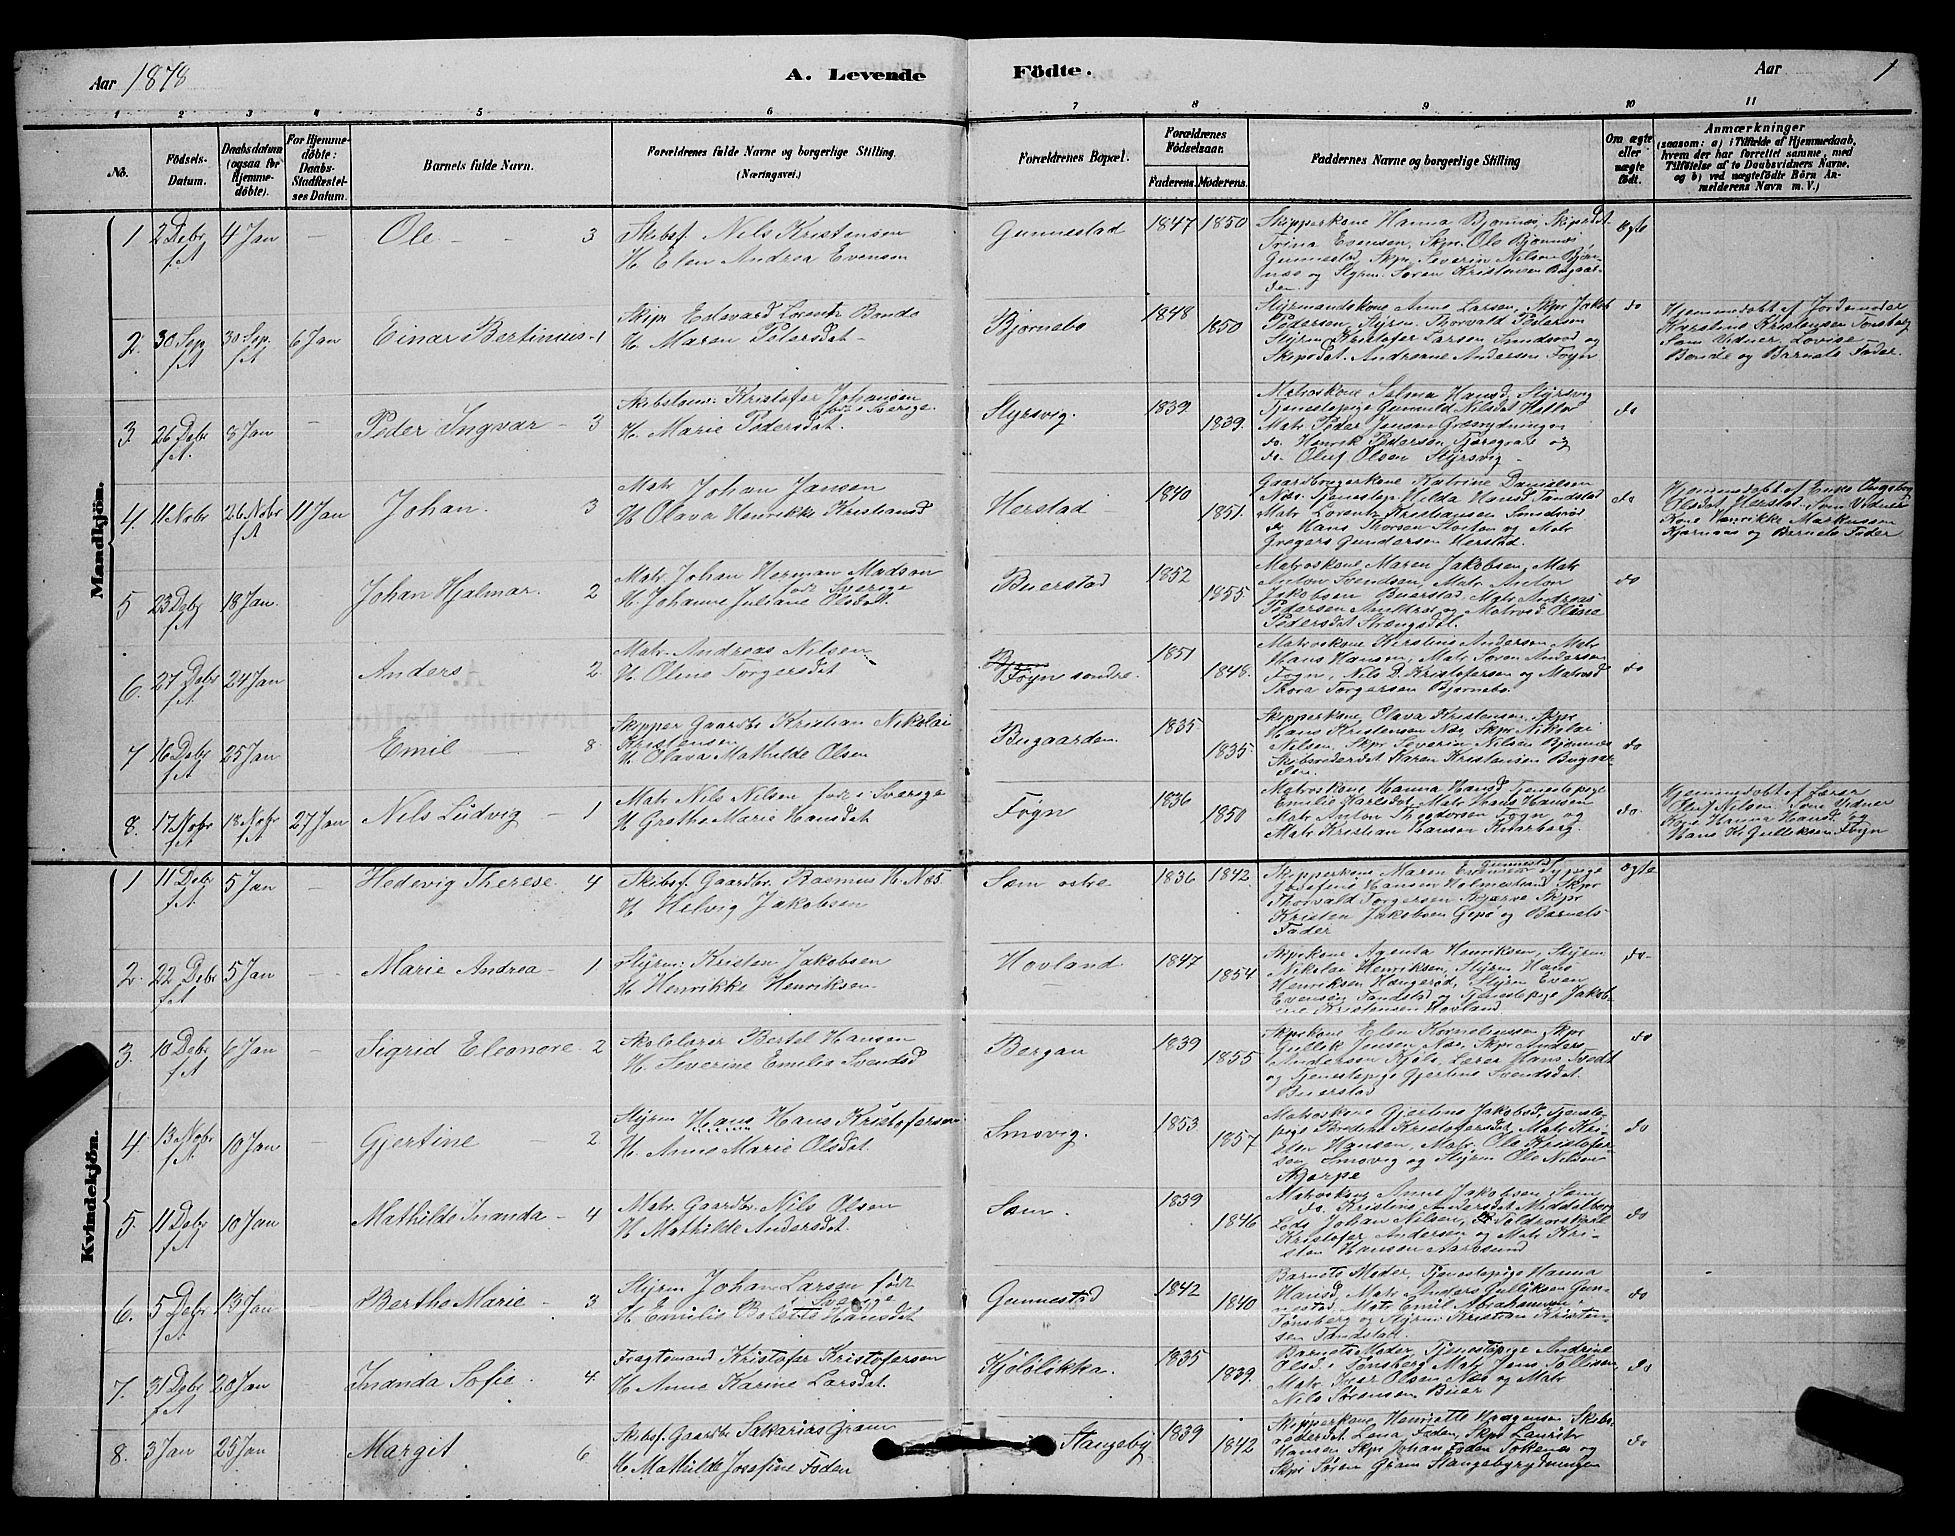 Aar 1878
A. Levende Födte.
Aar 1
1 2 3 4 5 6 7 8 9 10 11
No.
Födsels-Datum.
Daabsdatum (ogsaa for Hjemme-döbte).
For Hjemme-döbte: Daabs-Stadfæstel-ses Datum.
Barnets fulde Navn.
Forældrenes fulde Navne og borgerlige Stilling. (Næringsvei.)
Forældrenes Bopæl.
Forældrenes Födselsaar.
Faderens. Moderens.
Faddernes Navne og borgerlige Stilling
Om ægte eller uægte födt.
Anmærkninger
(saasom: a) i Tilfælde af Hjemmedaab, hvem der har forrettet samme, med Tilföielse af to Daabsvidners Navne, og b) ved uægtefödte Börn An-melderens Navn m. V.)
Mandkjön.
1 2 Debr f.A 4 Jan — Ole - - 3
Skibsf. Nils Kristensen
H. Elen Andrea Evensen
Gunnestad 1847 1850
Skipperkone Hanna Bjønnes, Skipsdt.
Trina Evensen, Skpr. Ole Bjønnes
Gunnestad, Skpr Severin Nilsen Bjøn-
nes og Styrm. Søren Kristensen Bugaar-
den.
ægte
2. 30 Sep f.A 30 Sep. f.A 6 Jan Einar Bertinius - 1
Skipr Edevard Lorentz Bonde
H. Maren Petersdat -
Bjørnebo 1848 1850
Styrmandskone Anne Larsen, Skpr Jakob
Pedersen, Styrm. Thorvald Pedersen
Styrm Kristofer Larsen Sundrød og
Skipsdat. Andreane Andersen Føyn
do
Hjemmedøbt af Jordemoder
Karstens Kristensen Tønsberg
Som Vidner Lovise
Bonde og Barnets Fader.
3. 26 Debr f.A 8 Jan — Peder Ingvar - 3
Skibstøm. Kristofer Johansen
født i Sverige.
H. Marie Pedersdat.
Styrsvig. 1839 1839.
Matroskone Selma Hansd. Styrsvig
Tjenestepige Gunnild Nilsdt
Matr Peder Jensen Græsrydningen
do. Henrik Pedersen og
do. Oluf Olsen Styrsvig -
do
4. 11 Nobr 26 Nobr f.A 11 Jan Johan. 3
Matr Johan Jansen
H. Olava Henrikke Kristiansd
Herstad 1840 1851.
Gaardbrugerkone Katrine Danielsen
Næs. Tjenestep. Hilda Hansd. Tandstad
Matr Lorentz Kristiansen Sundrød
do Hans Thorsen og Matr
Gregers Gundersen Herstad.
do
Hjemmedøbt af Enke Ingeborg
Olsdat Herstad. Som Vidner
Kone Henrikke Markussen
Kjærnaas og Barnets Fader
5 23 Debr f.A 18 Jan. Johan Hjalmar. 2
Matr. Johan Herman Madsen
født Sverige
H. Johanne Juliane Olsdat.
Buerstad 1852 1855.
Matroskone Maren Jakobsen, Matr
Anton Svendsen, Matr Anton
Jakobsen Buerstad, Matr Andreas
Pedersen og Matrosd Oline
Pedersdat Strengsdal.
do
6. 27 Debr f.A 24 Jan Anders 2.
Matr. Andreas Nilsen
H. Oline Torgersdat
Føyn søndre. 1851 1848.
Matroskone Kirstine Andersen, Matr
Hans Hansen, Matr Søren Andersen
Føyn, Nils D. Kristofersen og Matrosd
Thora Torgersen Bjørnebo.
do
7 16 Debr f.A 25 Jan Emil — 8.
Skipper Gaardbr Kristian Nikolai
Kristensen
H. Olava Mathilde Olsen
Bugaarden 1835 1835.
Skipperkone Olava Kristensen, Skpr
Hans Kristensen Næs, Skpr Nikolai
Nilsen, Skpr Severin Nilsen Bjønnes
Skibsrederdt Karen Kristensen Bugaar-
den.
do
8. 17 Nobr f.A 18 Nobr f.A 27 Jan Nils Ludvig - 1
Matr Nils Nilsen født i Sverige
H. Grethe Marie Hansdat
Føyn 1836 1850
Matroskone Hanna Hansd Tjenestepige
Emilie Karlsdat, Matr Hans Hansen
Matr Anton Theodorsen Føyn og
Matr Kristian Hansen Kvarberg.
do.
Hjemmedøbt af Lærer
Oluf Nilsen, Som Vidner
Kone Hanna Hansd. og
Hans K. Gulliksen Føyn
Kvindekjön.
1 11 Debr f.A 5 Jan — Hedevig Therese 4
Skibsf. Gaardbr. Rasmus H. Næs.
H. Helvig Jakobsen
Sæm østre 1836 1842
Skipperkone Maren Evensen Gunnestad, Sypige
Josefine Hansen Holmestrand Skpr
Thorvald Torgersen Skjerve Skpr
Kristen Jakobsen Gipø og Barnets
Fader
ægte
2. 22 Debr f.A 5 Jan — Marie Andrea - 1
Styrm. Kristen Jakobsen
H. Henrikke Henriksen
Hovland 1847 1854
Skpskone Agenta Henriksen, Styrm
Nikolai Henriksen, Styrm Hans
Henriksen Hængerød, Styrm Even
Evensen Tandstad og Tjenestepige Jakob-
ine Kristensen Hovland.
do -
3. 10 Debr f.A 6 Jan — Sigrid Eleonore - 2
Skolelærer Bertel Hansen
H. Severine Emilie Svendsd
Bergan 1839 1855
Skprkone Elen Korneliussen, Skpr
Gullek Jensen Næs, Skpr Anders
Andersen Kjøle, Lærer Hans Tvedt
og Tjenestepige Gjertine Svendsdat.
Buerstad
do
4. 13 Nobr f.A 10 Jan — Gjertine - 2
Styrm Hans Hans Kristofersen
H. Anne Marie Olsdat.
Smøvig. 1853 1857
Matroskone Gjertine Jakobsd, Tjeneste-
pige Kristofersdat, Matr Kri-
sten Hansen, Matr. Ole Kristofer-
sen Smøvig og Styrm Ole Nilsen
Skjerpe
do
5. 11 Debr f.A 10 Jan Mathilde Inanda - 4
Matr Gaardbr. Nils Olsen
H. Mathilde Andersdat.
Sæm. 1839 1846
Matroskone Anne Jakobsen Sæm
do. Kristens Andersdat Middelborg
Lods Johan Nilsen, Toldroskarl
Kristofer Andersen og Matr Kri-
sten Hansen Aarøsund
do
6. 5 Debr f.A 13 Jan Berthe Marie - 3.
Styrm Johan Larsen født
Sverige
H. Emilie Bolette Hansdat
Gunnestad 1842 1840
Barnets Moder, Tjenestepige Hanna
Hansd, Matr Anders Gulliksen Gun-
nestad, Matr Emil Abrahamsen
Tønsberg og Styrm. Kristian Kristen-
sen Tandstad.
do
7. 31 Debr f.A 20 Jan Inanda Sofie 4.
Fragtemand Kristofer Kristofersen
H. Anne Karine Larsdat.
Kjøløløkka. 1835 1839.
Barnets Moder, Tjenestepige Andrine
Olsd i Tønsberg, Matr Jens Tollefsen
Matr Iver Olsen Næs og Matr
Nils Sørensen Buer
do
8. 3 Jan 25 Jan Margit 6.
Skibsf. Gaardbr Sakarias Gram
H. Mathilde Josefine Foden
Stangeby 1839 1842
Skipperkone Henriette Haagensen Skibs-
rederdat Lena Foden, Skpr Lauritz
Hansen Skpr Johan Foden Tokenes og
Skpr Søren Gram Stangebyrydningen
do